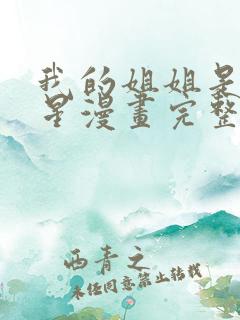 我的姐姐是
星漫畫完整
西青之
未经同意禁止转载